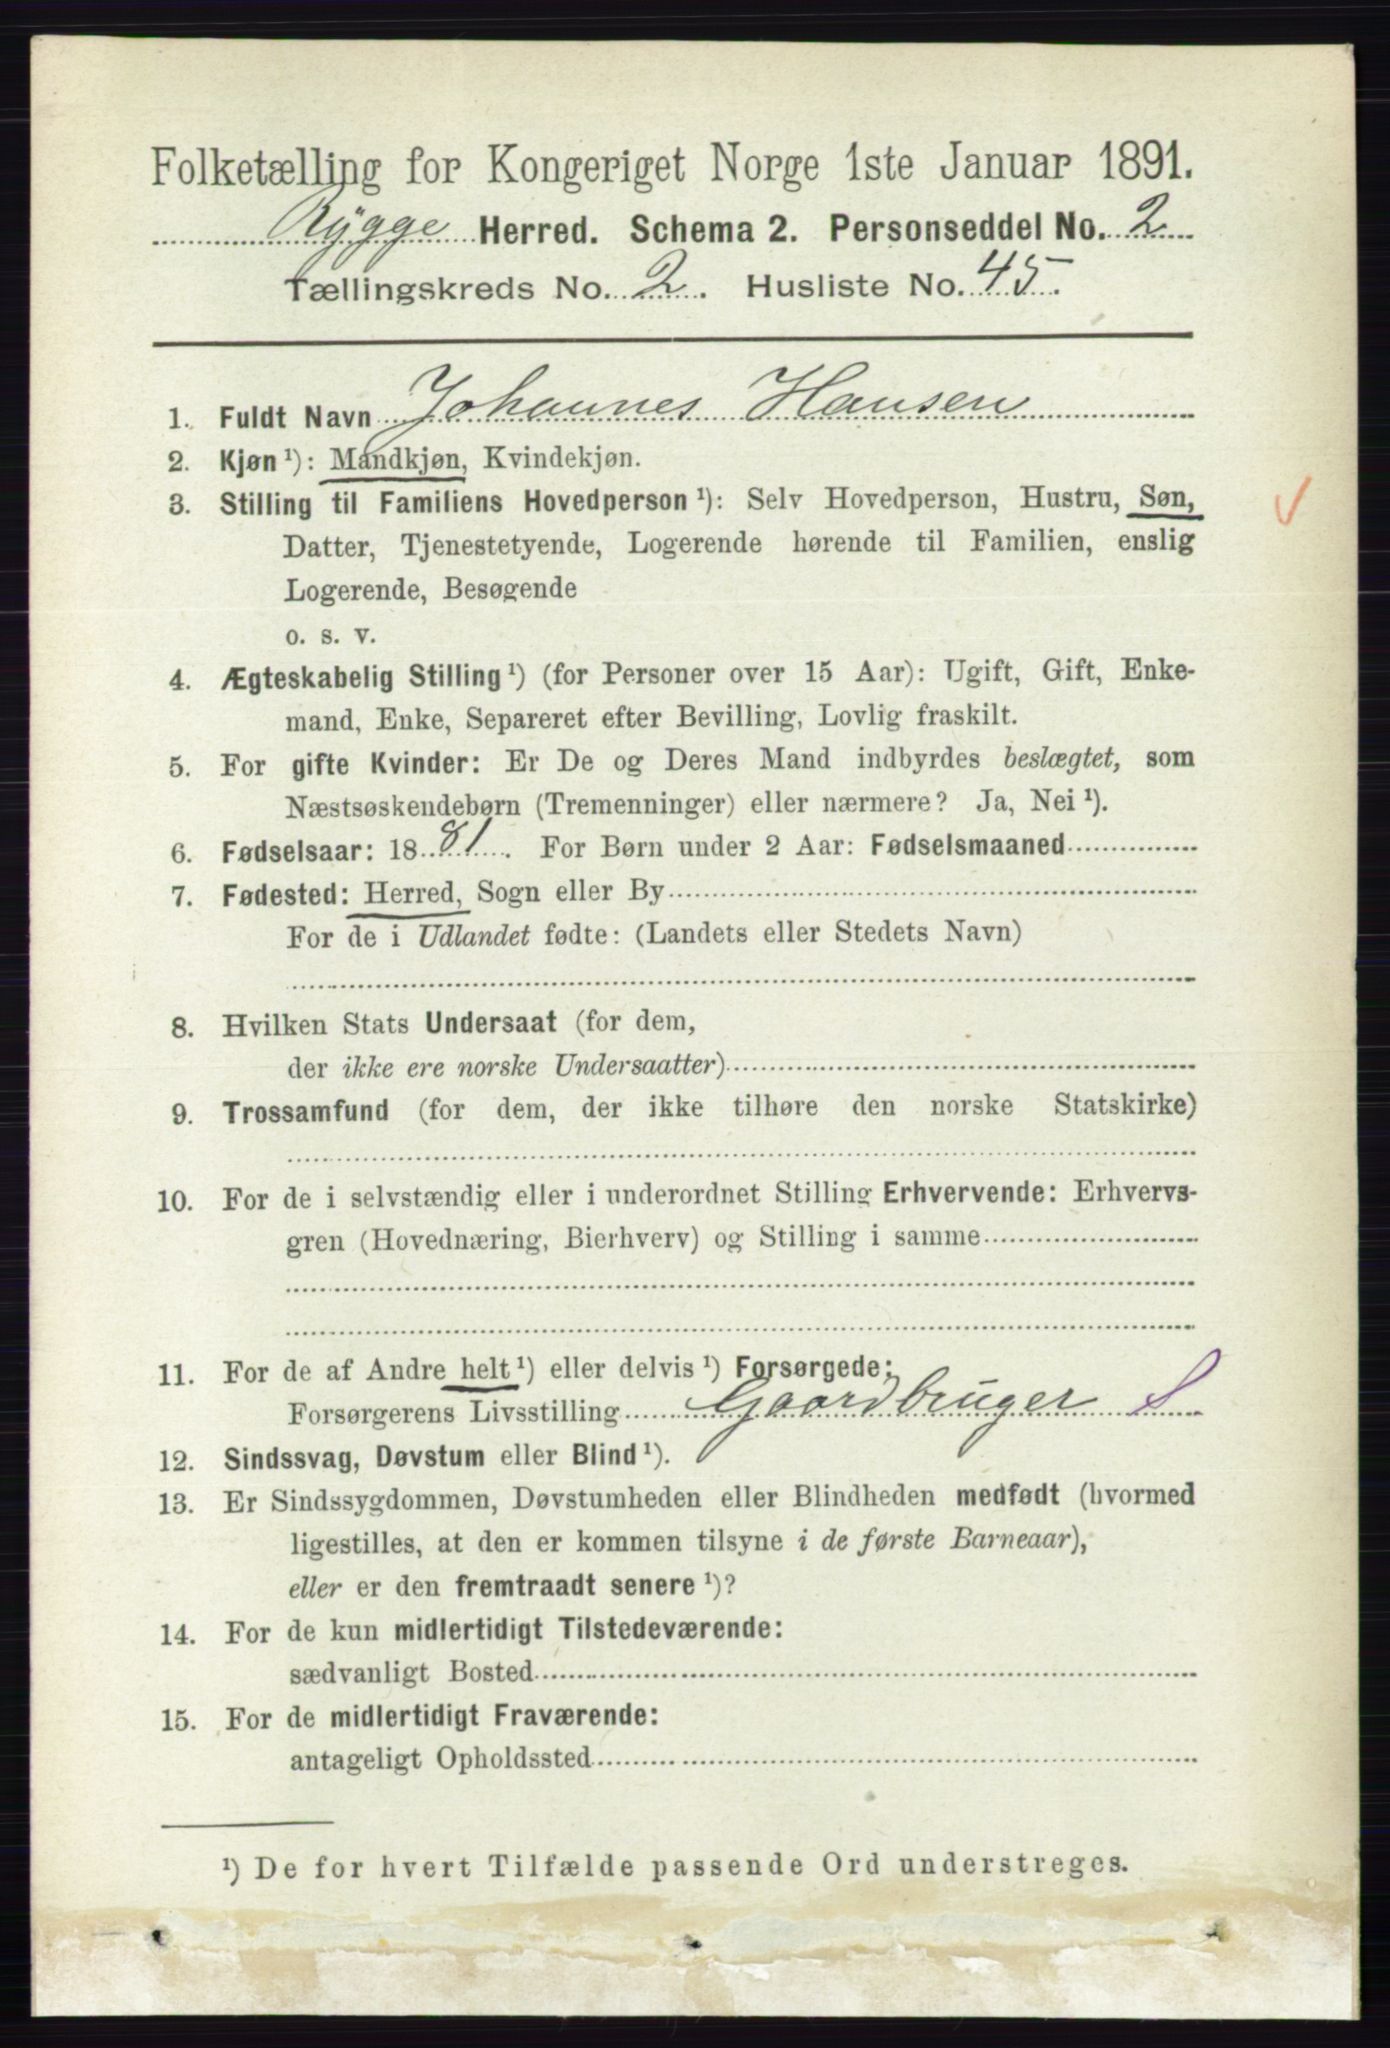 Folketælling for Kongeriget Norge 1ste Januar 1891.
Rygge Herred. Schema 2. Personseddel No. 2
Tællingskreds No. 2. Husliste No. 45.
1. Fuldt Navn Johannes Hansen
2. Kjøn ¹): Mandkjøn, Kvindekjøn.
3. Stilling til Familiens Hovedperson ¹): Selv Hovedperson, Hustru, Søn,
Datter, Tjenestetyende, Logerende hørende til Familien, enslig
Logerende, Besøgende
o. s. v.
4. Ægteskabelig Stilling ¹) (for Personer over 15 Aar): Ugift, Gift, Enke-
mand, Enke, Separeret efter Bevilling, Lovlig fraskilt.
5. For gifte Kvinder: Er De og Deres Mand indbyrdes beslægtet, som
Næstsøskendebørn (Tremenninger) eller nærmere? Ja, Nei ¹).
6. Fødselsaar: 1881. For Børn under 2 Aar: Fødselsmaaned
7. Fødested: Herred, Sogn eller By
For de i Udlandet fødte: (Landets eller Stedets Navn)
8. Hvilken Stats Undersaat (for dem,
der ikke ere norske Undersaatter)
9. Trossamfund (for dem, der ikke tilhøre den norske Statskirke)
10. For de i selvstændig eller i underordnet Stilling Erhvervende: Erhvervs-
gren (Hovednæring, Bierhverv) og Stilling i samme
11. For de af Andre helt ¹) eller delvis ¹) Forsørgede:
Forsørgerens Livsstilling Gaardbruger S
12. Sindssvag, Døvstum eller Blind ¹).
13. Er Sindssygdommen, Døvstumheden eller Blindheden medfødt (hvormed
ligestilles, at den er kommen tilsyne i de første Barneaar),
eller er den fremtraadt senere ¹)?
14. For de kun midlertidigt Tilstedeværende:
sædvanligt Bosted
15. For de midlertidigt Fraværende:
antageligt Opholdssted
¹) De for hvert Tilfælde passende Ord understreges.